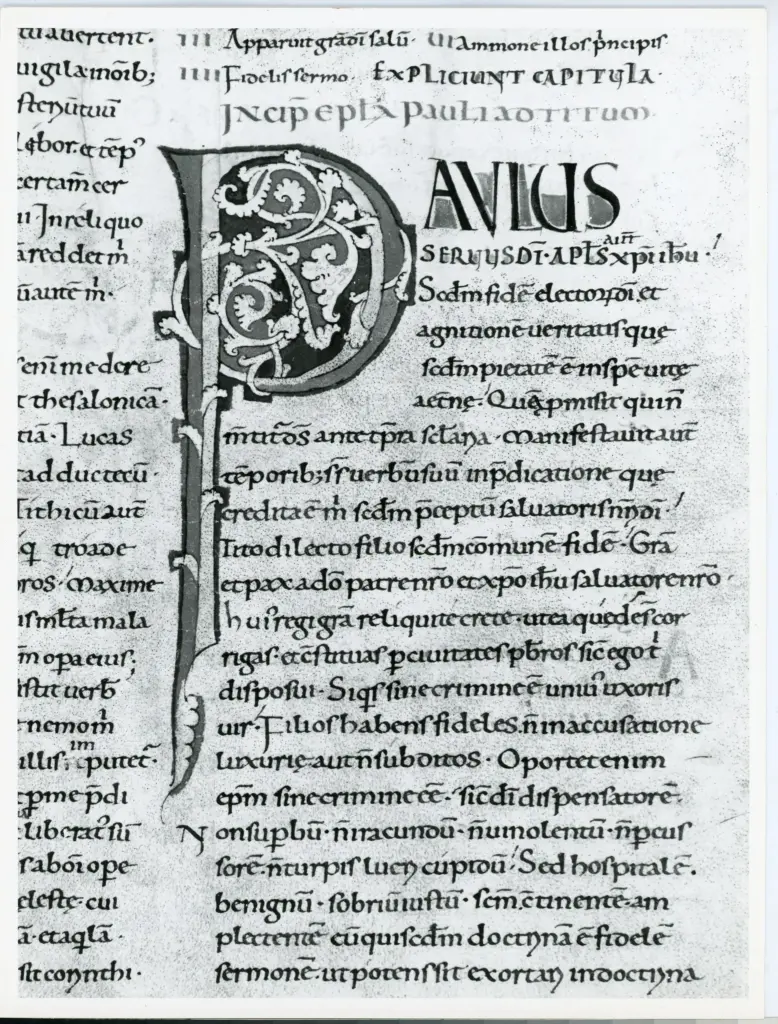 tuauertent.
uigilamorib;
stenutuū
Labor. & tēp
certam̄ cer
ui. Inreliquo
areddet m̄
ūautē m̄.
enim me dere
t thesalonica.
tiā. Lucas
adductecū.
Tithicū aut̄
q̄ troade
ros. maxime
ismlta mala
m̄ opa eius;
istit uerb̄
nemo m̄
illis. īputet.
im
cpme p̄di
liberat' sū
sabōiope
eleste. cui
ā. etaqlā.
sit corynthi.
III Apparuit grā dī salū. UI Ammone illos p̄ncipis
IIII Fidelis sermo. EXPLICIUNT CAPITULA.
INCIP EPLA PAULI AD TITUM
PAVLUS
SERUUS DĪ. APLS AUT̄ XPI IHU.
Scdm fidē electorū dī. et
agnitionē ueritatis que
scdm pietatē ē inspē uitę
aetnę. Quē pmisit qui n̄
m̄titds̄ ante tp̄ra sclaria. manifestauit aut̄
tēporib; s̄s uerbū suū inp̄dicatione que
credita ē m̄ scdm p̄ceptū saluatoris nr̄i dī.
Tito dilecto filio scdm cōmunē fidē. Grā
et pax ad̄o patre nr̄o et xpo ihu saluatore nr̄o.
hui' rei grā reliqui te crete. ut ea que desc̄ cor
rigas. et c̄stituas p ciuitates pb̄ros sic ego t̄
disposui. Siqs sine crimine ē uniu' uxoris
uir. Filios habens fideles. n̄ in accusatione
luxurię. aut n̄ subditos. Oportet enim
epm̄ sine crimine ēē. sic dī dispensatorē.
Non supbū. n̄ iracundū. n̄ uinolentū. n̄ pcus
sorē. n̄ turpis lucri cupidū. Sed hospitalē.
benignū. sobriū iustū. scm̄. c̄tinentē. am
plectentē eū qui scdm doctrinā ē fidelē
sermonē. ut potens sit exortari in doctrina